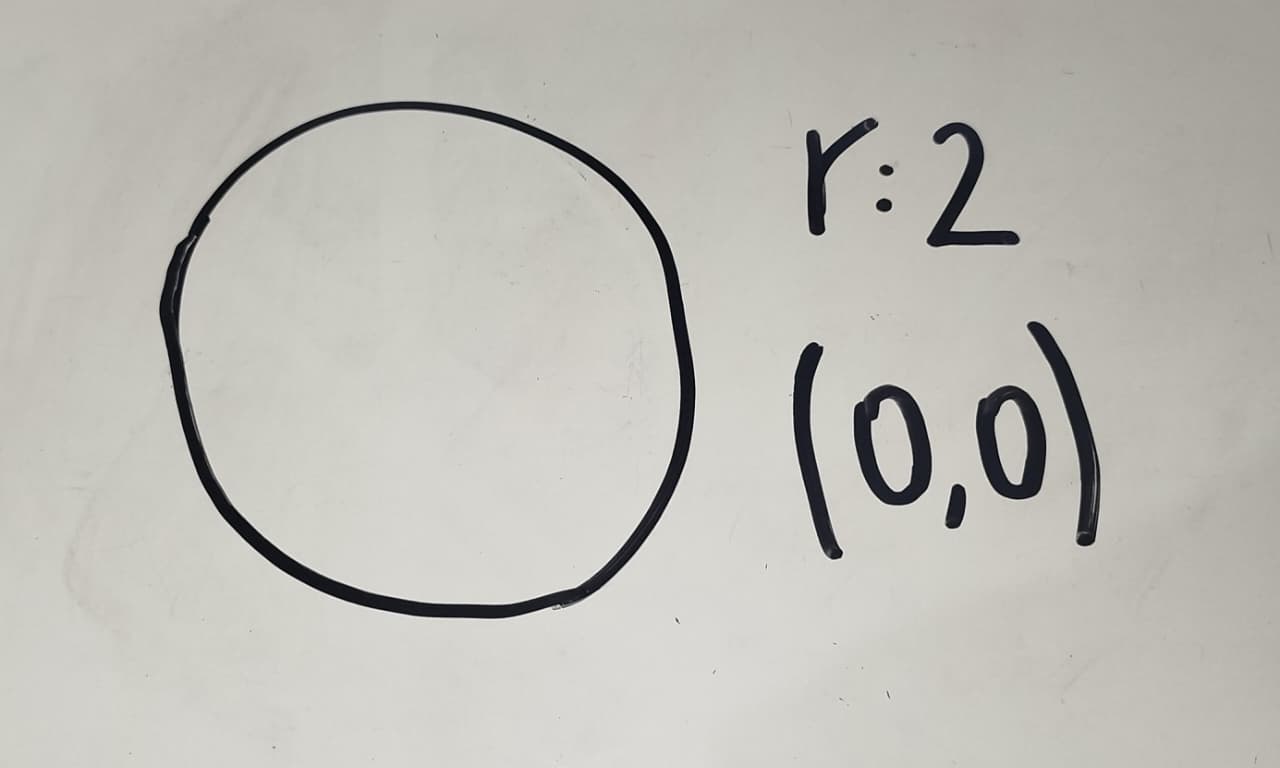 r:2
(0,0)